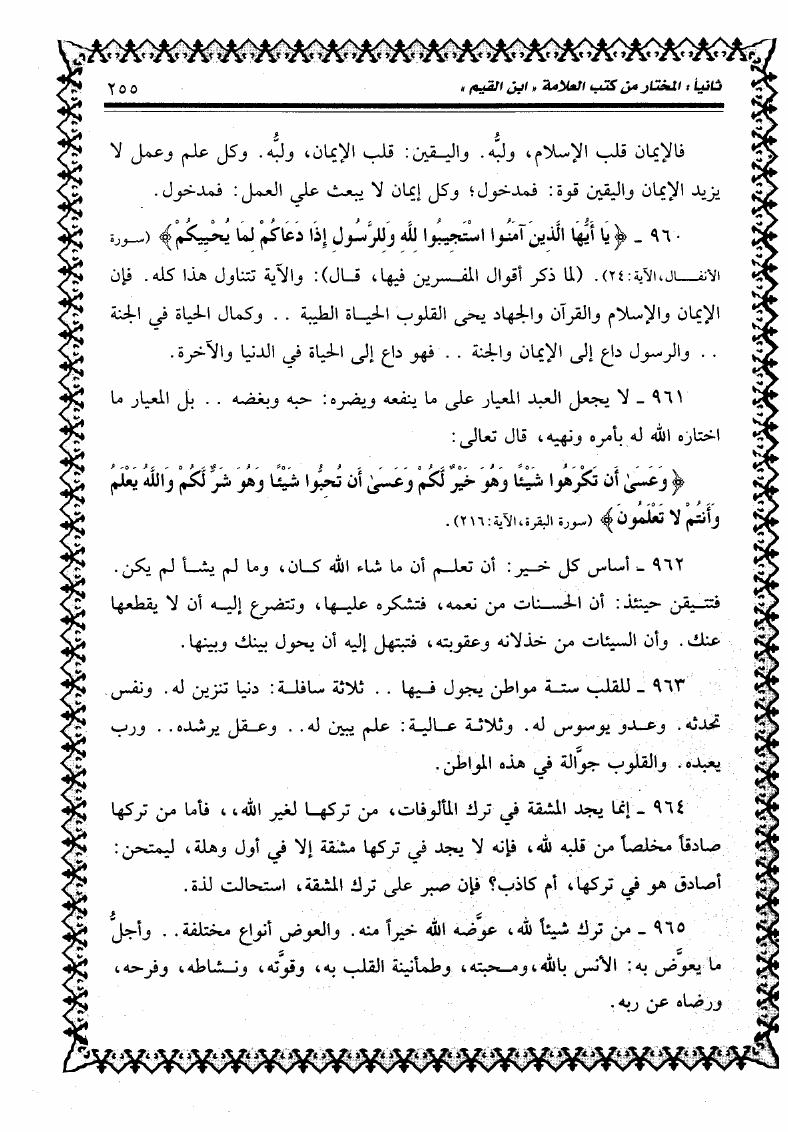 ثانياً : المختار من كتب العلامة « ابن القيم » ٢٥٥
فالإيمان قلب الإسلام، ولبُّه. واليـقين: قلب الإيمان، ولبُّه. وكل علم وعمل لا
يزيد الإيمان واليقين قوة: فمدخول؛ وكل إيمان لا يبعث علي العمل: فمدخول.
٩٦٠ ـ ﴿ يَا أَيُّهَا الَّذِينَ آمَنُوا اسْتَجِيبُوا لِلَّهِ وَلِلرَّسُولِ إِذَا دَعَاكُمْ لِمَا يُحْيِيكُمْ ﴾ (سـورة
الأنفــال، الآية:٢٤). (لما ذكر أقوال المفـسرين فيها، قـال): والآية تتناول هذا كله. فإن
الإيمان والإسلام والقرآن والجهاد يحى القلوب الحيـاة الطيبة . . وكمال الحياة في الجنة
. . والرسول داع إلى الإيمان والجنة . . فهو داع إلى الحياة في الدنيا والآخرة.
٩٦١ ـ لا يجعل العبد المعيار على ما ينفعه ويضره: حبه وبغضه . . بل المعيار ما
اختاره الله له بأمره ونهيه، قال تعالى:
﴿ وَعَسَىٰ أَن تَكْرَهُوا شَيْئًا وَهُوَ خَيْرٌ لَّكُمْ وَعَسَىٰ أَن تُحِبُّوا شَيْئًا وَهُوَ شَرٌّ لَّكُمْ وَاللَّهُ يَعْلَمُ
وَأَنتُمْ لا تَعْلَمُونَ ﴾ (سورة البقرة، الآية:٢١٦).
٩٦٢ ـ أساس كل خـير: أن تعلـم أن ما شاء الله كـان، وما لم يشـأ لم يكن.
فتتـيقن حينئذ: أن الحسـنات من نعمه، فتشكره عليـها، وتتضرع إليـه أن لا يقطعها
عنك. وأن السيئات من خذلانه وعقوبته، فتبتهل إليه أن يحول بينك وبينها.
٩٦٣ ـ للقلب ستـة مواطن يجول فـيها . . ثلاثة سافلـة: دنيا تتزين له. ونفس
تحدثه. وعـدو يوسوس له. وثلاثـة عـالية: علم يبين له. . وعـقل يرشده. . ورب
يعبده. والقلوب جوَّالة في هذه المواطن.
٩٦٤ ـ إنما يجد المشقة في ترك المألوفات، من تركهـا لغير الله،، فأما من تركها
صادقاً مخلصاً من قلبه لله، فإنه لا يجد في تركها مشقة إلا في أول وهلة، ليمتحن:
أصادق هو في تركها، أم كاذب؟ فإن صبر على ترك المشقة، استحالت لذة.
٩٦٥ ـ من ترك شيئاً لله، عوَّضه الله خيراً منه. والعوض أنواع مختلفة. . وأجلُّ
ما يعوَّض به: الأنس بالله، ومـحبته، وطمأنينة القلب به، وقوَّته، ونـشاطه، وفرحه،
ورضاه عن ربه.